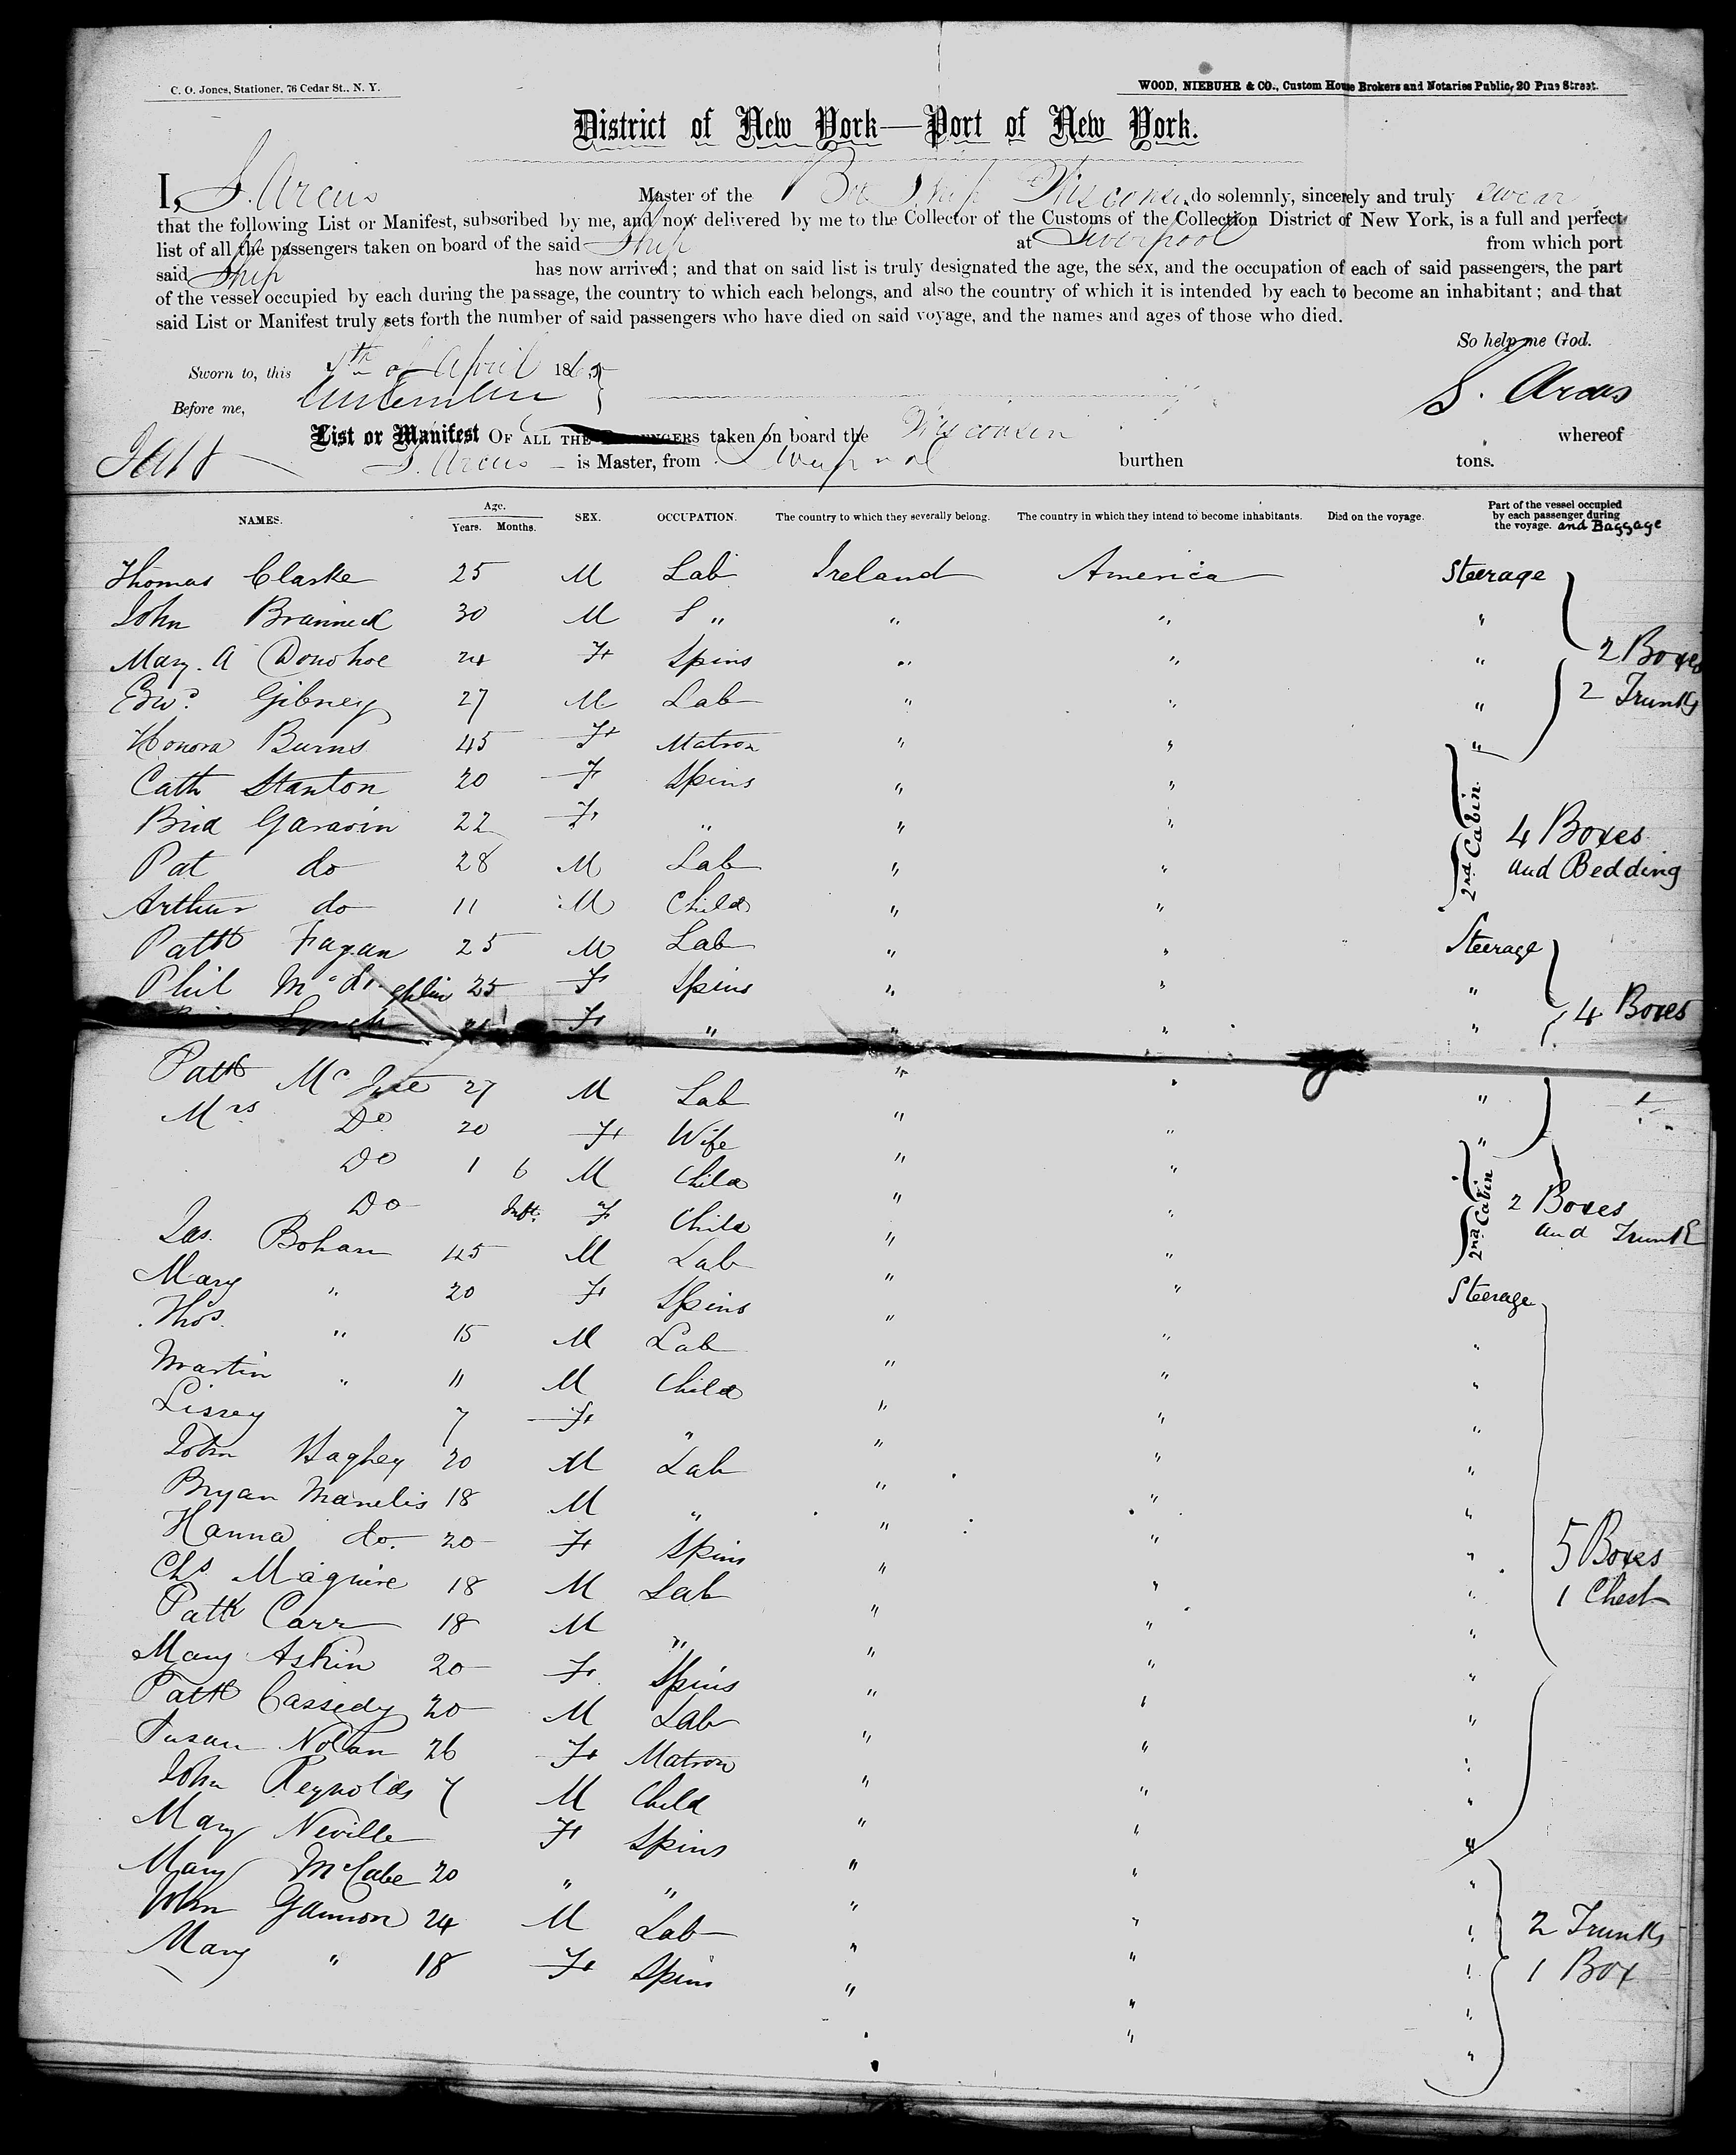 C. O. Jones, Stationer, 76 Cedar St., N. Y.
WOOD, NIEBUHR & CO., Custom House Brokers and Notaries Public, 20 Pine Street.
District of New York—Port of New York.
I, S. Arcus Master of the Br Ship Wisconsin do solemnly, sincerely and truly swear
that the following List or Manifest, subscribed by me, and now delivered by me to the Collector of the Customs of the Collection District of New York, is a full and perfect
list of all the passengers taken on board of the said Ship at Liverpool from which port
said Ship has now arrived; and that on said list is truly designated the age, the sex, and the occupation of each of said passengers, the part
of the vessel occupied by each during the passage, the country to which each belongs, and also the country of which it is intended by each to become an inhabitant; and that
said List or Manifest truly sets forth the number of said passengers who have died on said voyage, and the names and ages of those who died.
So help me God.
Sworn to, this 5th of April 1865
S. Arcus
Before me,
List or Manifest OF ALL THE PASSENGERS taken on board the Wisconsin whereof
S. Arcus is Master, from Liverpool burthen tons.
NAMES. Age. Years. Months. SEX. OCCUPATION. The country to which they severally belong. The country in which they intend to become inhabitants. Died on the voyage. Part of the vessel occupied by each passenger during the voyage. and Baggage
Thomas Clarke 25 M Lab Ireland America Steerage
John Branned 30 M L " " " "
Mary. A Donohoe 24 F Spins " " " 2 Boxes
Edwd Gibney 27 M Lab " " " 2 Trunks
Honora Burns 45 F Matron " " "
Cath Stanton 20 F Spins " " 2nd Cabin
Brid Garavin 22 F " " " 4 Boxes
Pat do 28 M Lab " " and Bedding
Arthur do 11 M Child " "
Patk Fagan 25 M Lab " " Steerage
Phil McLoghlin 25 F Spins " " "
Lynch F " " " " 4 Boxes
Patk 27 M Lab " " "
Mrs Do 20 F Wife " " "
Do 1 6 M Child " " 2nd Cabin
Do Inft. F Child " " 2 Boxes
Jas. Bohan 45 M Lab " " and Trunk
Mary " 20 F Spins " " Steerage
Thos. " 15 M Lab " " "
Martin " 11 M Child " " "
Lissey 7 F " " " "
John Haghey 20 M Lab " " "
Bryan Manelis 18 M " " " "
Hanna do. 20 F Spins " " " 5 Boxes
Chs. Maguire 18 M Lab " " " 1 Chest
Patk Carr 18 M " " " "
Mary Askin 20 F Spins " " "
Patk Cassedy 20 M Lab " " "
Susan Nolan 26 F Matron " " "
John Reynolds 7 M Child " " "
Mary Neville F Spins " " "
Mary McCabe 20 " " " " "
John Gannon 24 M Lab " " " 2 Trunks
Mary " 18 F Spins " " " 1 Box